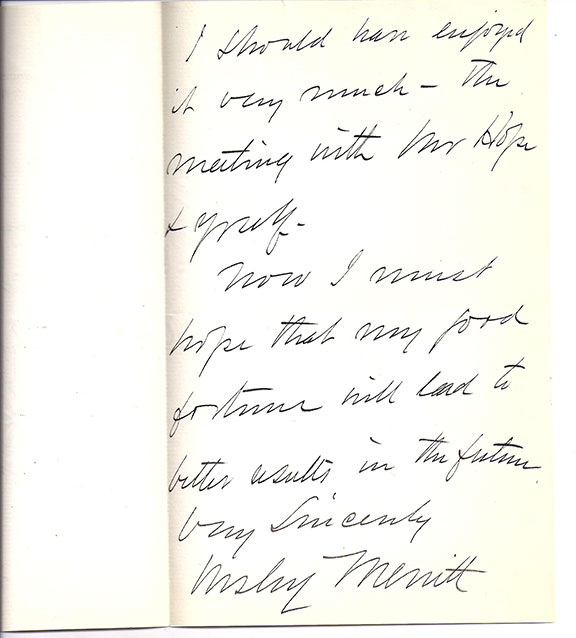 I should have enjoyed
it very much – the
meeting with Mr Hope
& yrself –
Now I must
hope that my good
fortune will lead to
better results in the future
Very Sincerely
Merritt